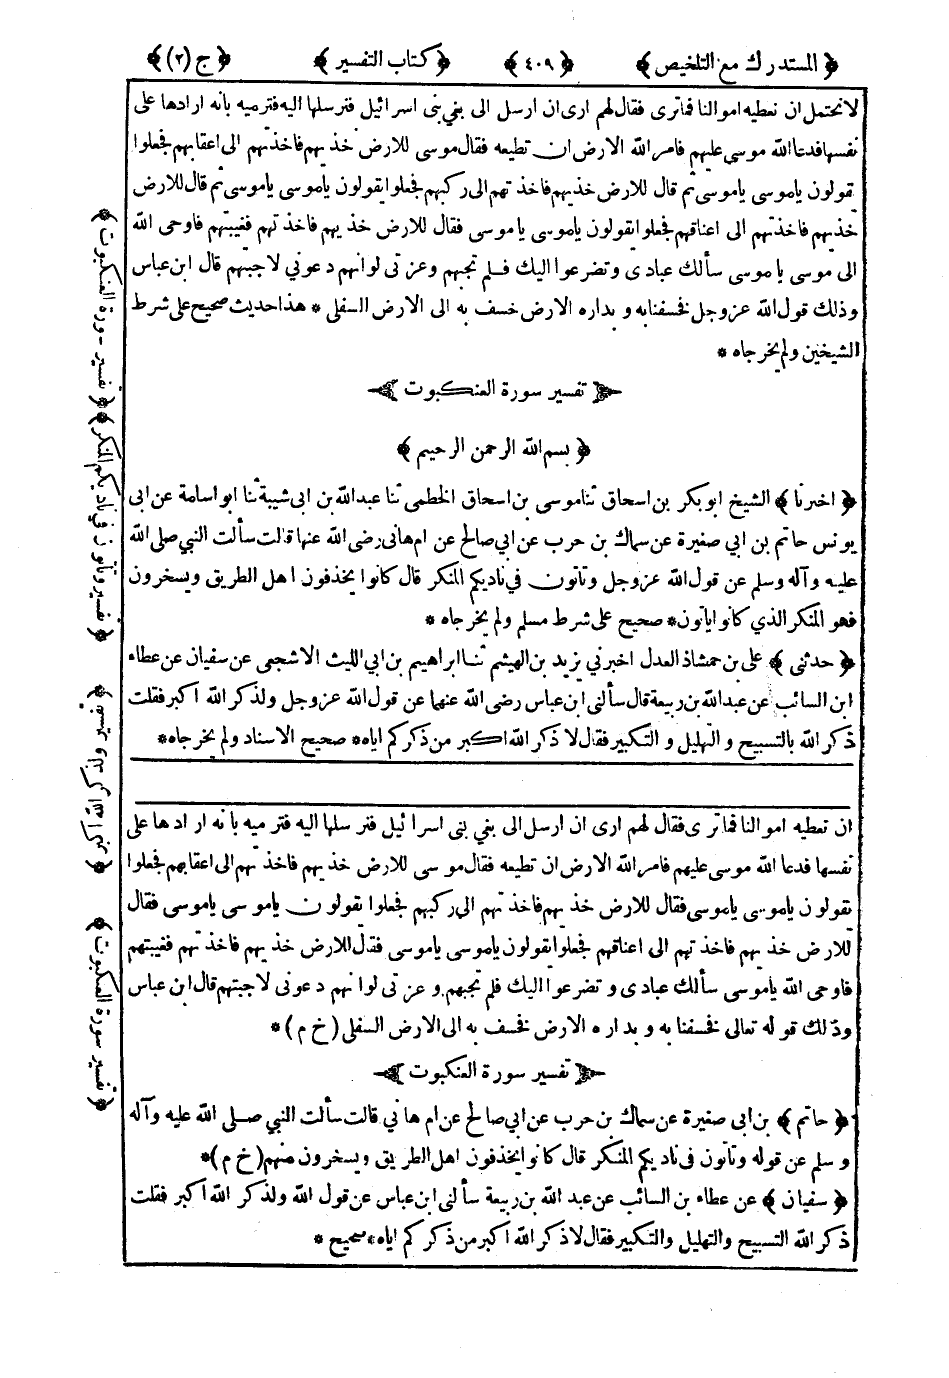 ﴿ المستدرك مع التلخيص ﴾ ﴿ ٤٠٩ ﴾ ﴿ كتاب التفسير ﴾ ﴿ ج (٢) ﴾
لا نحتمل ان نعطيه اموالنا فماترى فقال لهم ارى ان ارسل الى بغي بنى اسرائيل فنرسلها اليه فترميه بانه ارادها على
نفسها فدعا الله موسى عليهم فامر الله الارض ان تطيعه فقال موسى للارض خذيهم فاخذتهم الى اعقابهم فجعلوا
يقولون يا موسى يا موسى ثم قال للارض خذيهم فاخذتهم الى ركبهم فجعلوا يقولون يا موسى يا موسى ثم قال للارض
خذيهم فاخذتهم الى اعناقهم فجعلوا يقولون يا موسى يا موسى فقال للارض خذيهم فاخذتهم فغيبتهم فاوحى الله
الى موسى يا موسى سألك عبادى وتضرعوا اليك فلم تجبهم وعزتى لو انهم دعوني لاجبتهم قال ابن عباس
وذلك قول الله عز وجل فخسفنا به وبداره الارض خسف به الى الارض السفلى * هذا حديث صحيح على شرط
الشيخين ولم يخرجاه *
تفسير سورة العنكبوت
﴿ بسم الله الرحمن الرحيم ﴾
﴿ اخبرنا ﴾ الشيخ ابو بكر بن اسحاق ثنا موسى بن اسحاق الخطمى ثنا عبدالله بن ابى شيبة ثنا ابو اسامة عن ابى
يونس حاتم بن ابي صغيرة عن سماك بن حرب عن ابي صالح عن ام هانى رضى الله عنها قالت سألت النبي صلى الله
عليه وآله وسلم عن قول الله عز وجل وتأتون في ناديكم المنكر قال كانوا يخذفون اهل الطريق ويسخرون
فهو المنكر الذي كانوا ياتون * صحيح على شرط مسلم ولم يخرجاه *
﴿ حدثنى ﴾ على بن حمشاذ العدل اخبرني يزيد بن الهيثم ثنا ابراهيم بن ابي الليث الاشجعى عن سفيان عن عطاء
ابن السائب عن عبدالله بن ربيعة قال سألنى ابن عباس رضى الله عنهما عن قول الله عز وجل ولذكر الله اكبر فقلت
ذكر الله بالتسبيح والتهليل والتكبير فقال لا ذكر الله اكبر من ذكركم اياه * صحيح الاسناد ولم يخرجاه *
ان نعطيه اموالنا فما ترى فقال لهم ارى ان ارسل الى بغي بنى اسرائيل فنرسلها اليه فترميه بانه ارادها على
نفسها فدعا الله موسى عليهم فامر الله الارض ان تطيعه فقال موسى للارض خذيهم فاخذتهم الى اعقابهم فجعلوا
يقولون يا موسى يا موسى فقال للارض خذيهم فاخذتهم الى ركبهم فجعلوا يقولون يا موسى يا موسى فقال
للارض خذيهم فاخذتهم الى اعناقهم فجعلوا يقولون يا موسى يا موسى فقال للارض خذيهم فاخذتهم فغيبتهم
فاوحى الله يا موسى سألك عبادى وتضرعوا اليك فلم تجبهم وعزتى لو انهم دعونى لاجبتهم قال ابن عباس
وذلك قوله تعالى فخسفنا به وبداره الارض فخسف به الى الارض السفلى (خ م) *
تفسير سورة العنكبوت
﴿ حاتم ﴾ بن ابى صغيرة عن سماك بن حرب عن ابي صالح عن ام هاني قالت سألت النبي صلى الله عليه وآله
وسلم عن قوله وتأتون فى ناديكم المنكر قال كانوا يخذفون اهل الطريق ويسخرون منهم (خ م) *
﴿ سفيان ﴾ عن عطاء بن السائب عن عبد الله بن ربيعة سألنى ابن عباس عن قول الله ولذكر الله اكبر فقلت
ذكر الله التسبيح والتهليل والتكبير فقال لا ذكر الله اكبر من ذكركم اياه * صحيح *
﴿ تفسير سورة العنكبوت ﴾
﴿ تفسير وتأتون في ناديكم المنكر ﴾
﴿ تفسير سورة العنكبوت ﴾